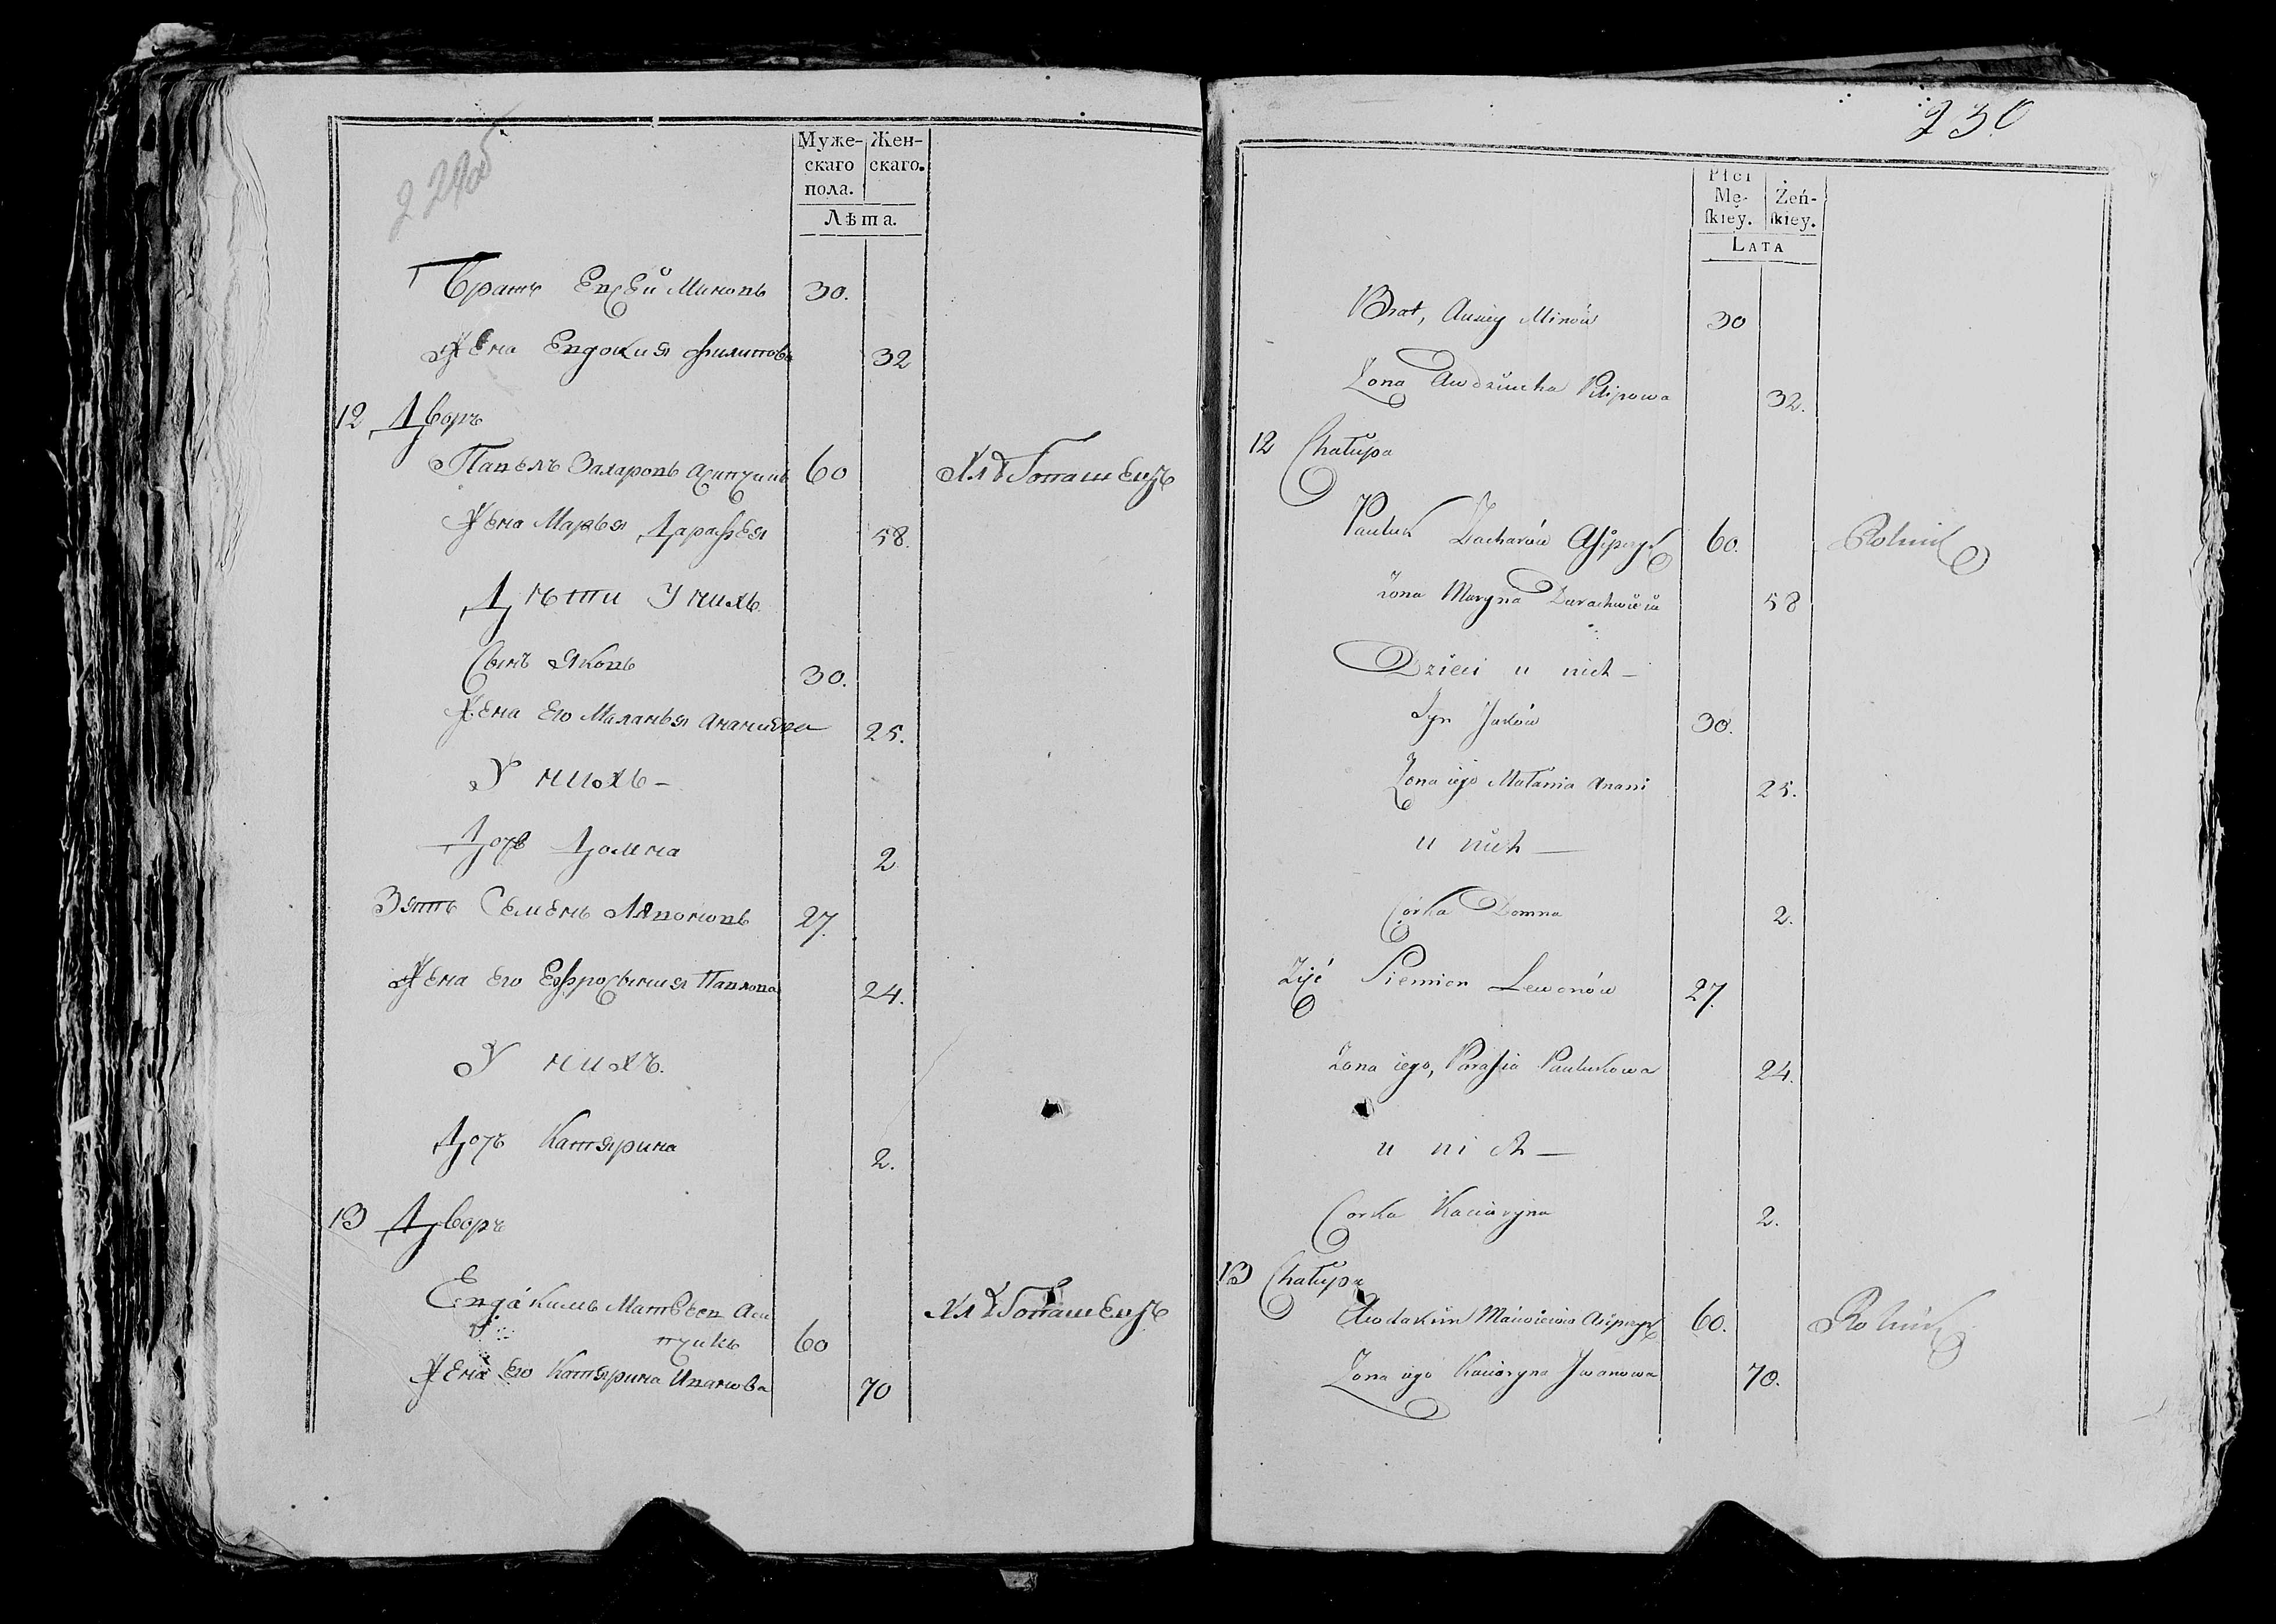 229об
Муже-
скаго
пола.
Жен-
скаго.
Лѣта.
Братъ Евсей Миновъ 30.
Жена Евдокия Филипова 32
12 Дворъ
Павелъ Захаровъ Асипчикъ 60 Хлѣбопашецъ
Жена Марья Дарафея 58.
Дѣти У нихъ
Сынъ Яковъ 30.
Жена Его Маланья Ананиева 25.
У нихъ –
Дочь Домна 2
Зять Семенъ Лявоновъ 27.
Жена Его Ефросыния Павлова 24.
У нихъ.
Дочь Катярина 2.
13 Дворъ
Евдакимъ Матвеев Аси
пчикъ 60 Хлѣбопашецъ
Жена Его Катярина Иванова 70
230
Płci
Mę-
ſkiey.
Żeń-
ſkiey.
LATA
Brat, Auſiey Minów 30
Żona Awdziucha Pilipowa 32.
12 Chałupa
Pauluk Zacharów Aſipczyk 60. Rolnik
Żona Maryna 58
Dzieci u nich –
Syn Jaków 30.
Żona iego Małania Anani 25.
u nich –
Córka Domna 2.
Zięć Siemion Lewonów 27.
Żona iego, Paraſia Paulukowa 24.
u nich –
Corka Kaciaryna 2.
13 Chałupa
Awdakim Maciwiejew Asipczyk 60. Rolnik
Żona iego Kaciaryna Jwanowa 70.